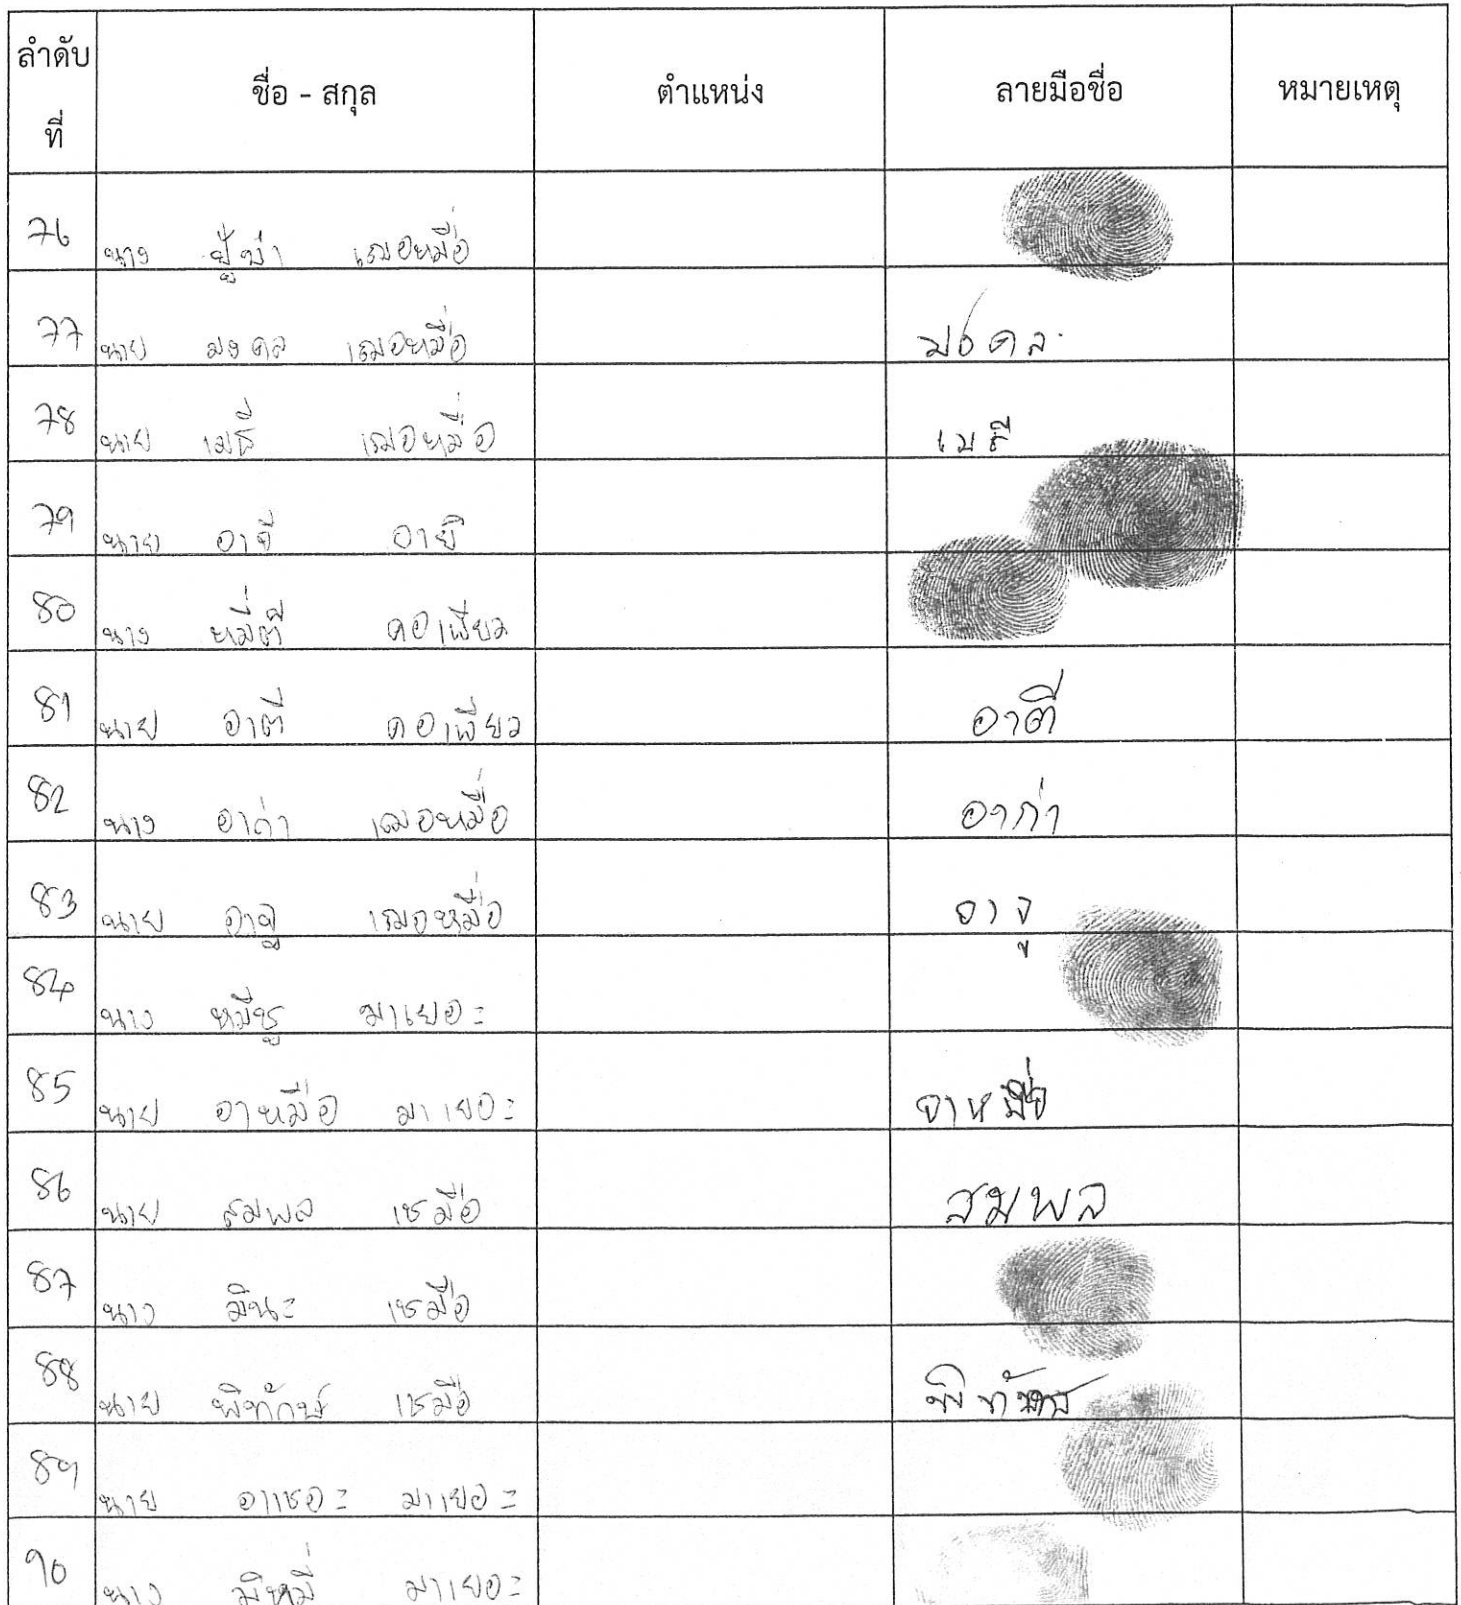 ลำดับที่ ชื่อ - สกุล ตำแหน่ง ลายมือชื่อ หมายเหตุ
76 นาง เฌอหมื่อ
77 นาย มงคล เฌอหมื่อ มงคล
78 นาย เมธี เฌอหมื่อ เมธี
79 นาย อาจี อายี
80 นาง หมี่ตี คอเพียว
81 นาย อาตี คอเพียว อาตี
82 นาง อาก่า เฌอหมื่อ อาก่า
83 นาย อาจู เฌอหมื่อ อาจู
84 นาง หมีชู มาเยอะ
85 นาย อาหมื่อ มาเยอะ อาหมื่อ
86 นาย สมพล เชมื่อ สมพล
87 นาง มินะ เชมื่อ
88 นาย พิทักษ์ เชมื่อ พิทักษ์
89 นาย อาเชอะ มาเยอะ
90 นาง มิหมี่ มาเยอะ